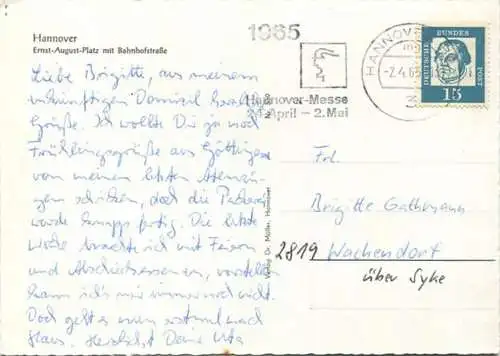 Hannover
Ernst-August-Platz mit Bahnhofstraße
Liebe Brigitte, aus meinem
zukünftigen Domizil herzl.
Grüße. Ich wollte Dir ja noch
Frühlingsgrüße aus Göttingen
von meinen letzten
schicken, doch die Packerei
wurde knapp fertig. Die letzte
Woche brachte ich mit Feiern
und Abschiedsessen zu, vorstellen
kann ich's mir immer noch nicht.
Doch geht es nun erstmal nach
Haus. Herzlichst Deine Uta
Verlag Dr. Möller, Hannover
1965
Hannover-Messe
24. April – 2. Mai
HANNOVER
-2.4.65
3
DEUTSCHE BUNDESPOST
15
Frl.
Brigitte Gathmann
2819 Wachendorf
über Syke